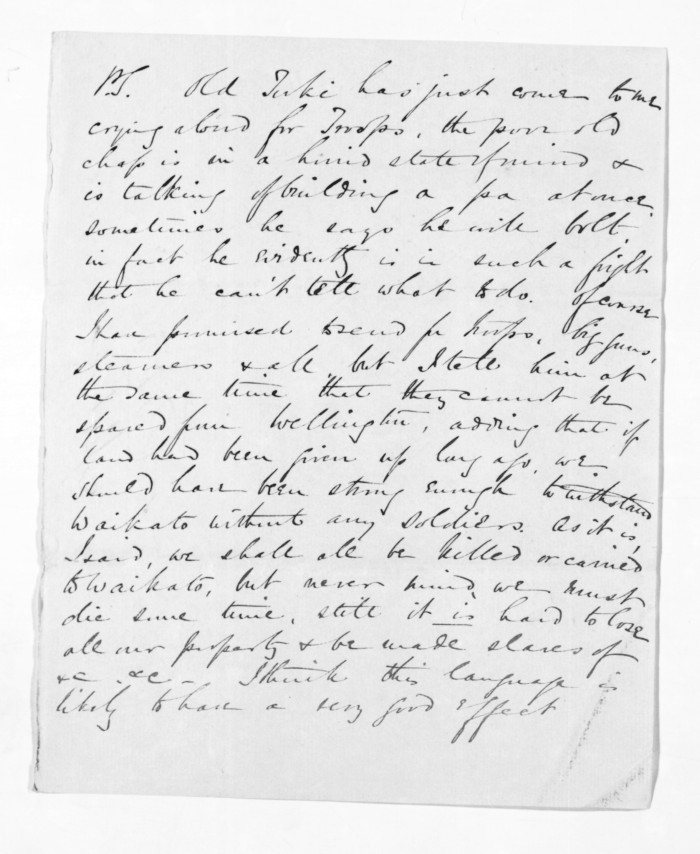 P.S. Old Tuki has just come to me
crying aloud for Troops, the poor old
chap is in a state of mind &
is talking of building a pa at once.
sometimes he says he will bolt,
in fact he evidently is in such a fright
that he can't tell what to do. Of course
I have promised to send for troops, big guns,
steamers & all, but I tell him at
the same time that they cannot be
spared from Wellington, adding that if
land had been given up long ago, we
should have been strong enough to withstand
Waikato without any soldiers. As it is,
I said, we shall all be killed or carried
to Waikato, but never mind, we must
die some time, still it is hard to lose
all our property & be made slaves of
&c &c - I think this language is
likely to have a very good effect